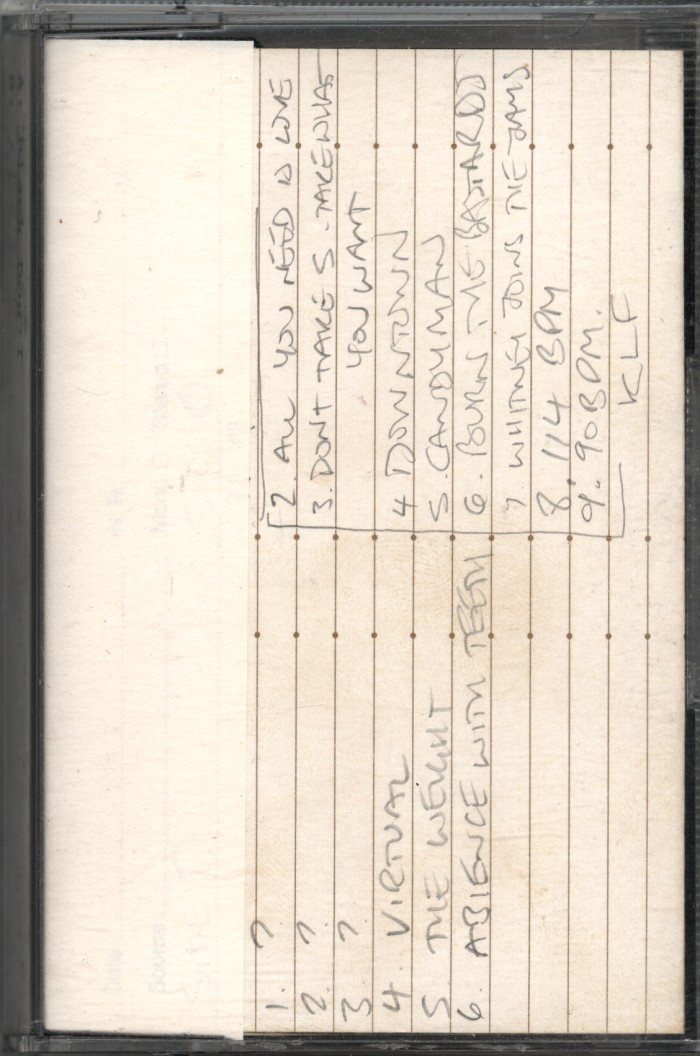 1. ?
2. ?
3. ?
4. VIRTUAL
5. THE WEIGHT
6. ABIENCE WITH TEETH
2. ALL YOU NEED IS LOVE
3. DON'T TAKE 5. TAKE WHAT
YOU WANT
4 DOWNTOWN
5. CANDYMAN
6. BURN THE BASTARDS
7. WHITNEY JOINS THE JAMS
8. 114 BPM
9. 90 BPM.
KLF